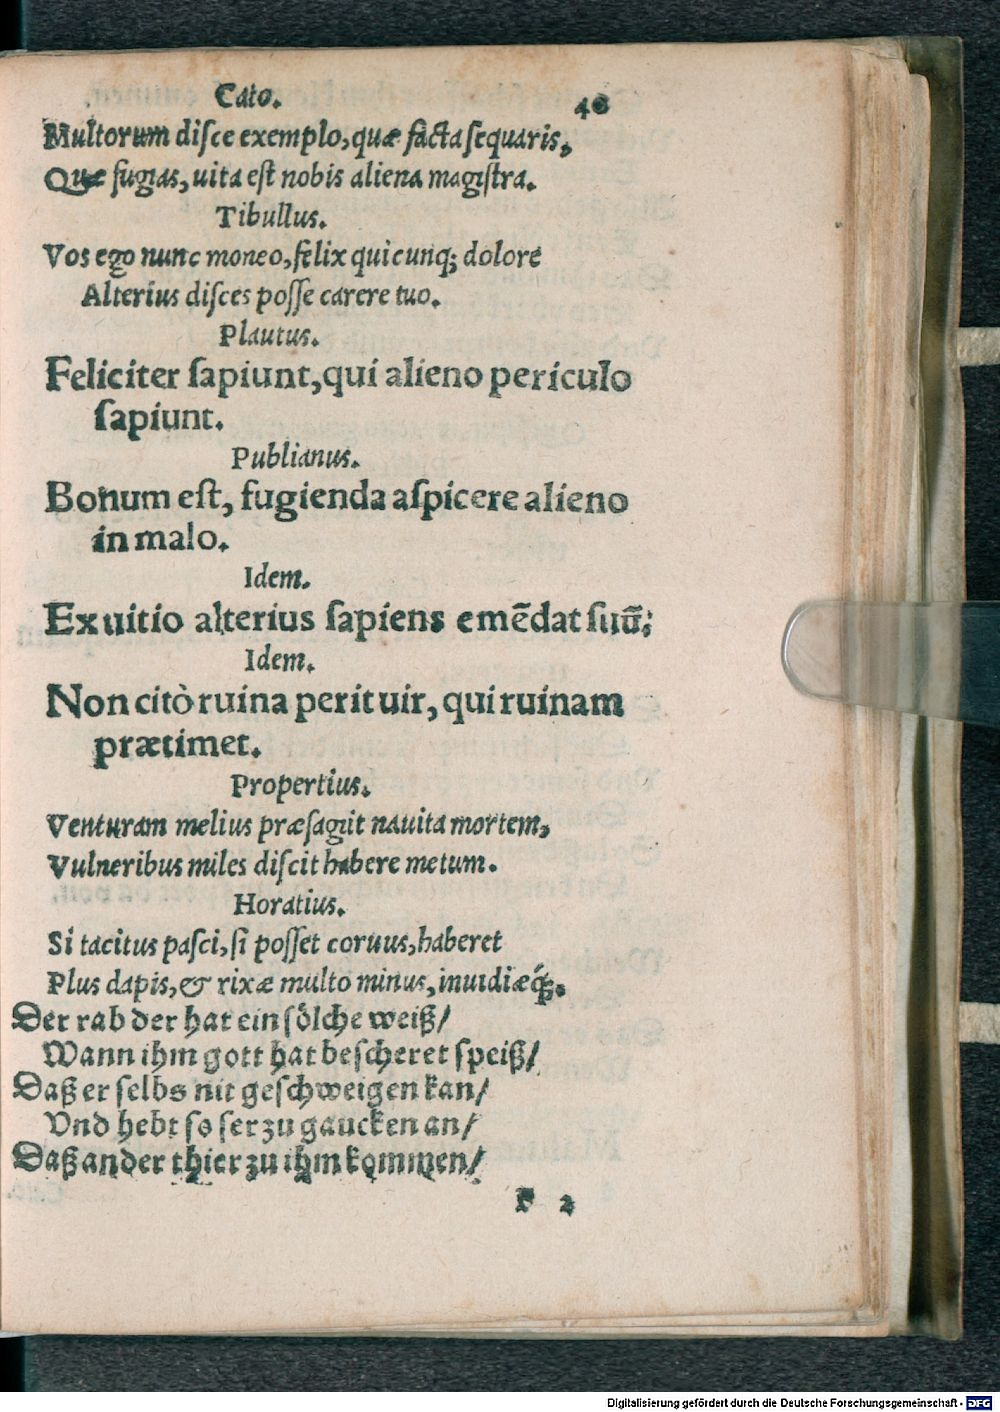 Cato. 40
Multorum diſce exemplo, quæ facta ſequaris,
Quæ fugias, uita eſt nobis aliena magiſtra.
Tibullus.
Vos ego nunc moneo, felix quicunq; dolore
Alterius diſces poſſe carere tuo.
Plautus.
Feliciter ſapiunt, qui alieno periculo
ſapiunt.
Publianus.
Bonum eſt, fugienda aſpicere alieno
in malo.
Idem.
Ex uitio alterius ſapiens emẽdat ſuũ;
Idem.
Non citò ruina perit uir, qui ruinam
prætimet.
Propertius.
Venturam melius præſagit nauita mortem,
Vulneribus miles diſcit habere metum.
Horatius.
Si tacitus paſci, ſi poſſet coruus, haberet
Plus dapis, & rixæ multo minus, inuidiæq́;.
Der rab der hat ein ſölche weiß/
Wann ihm gott hat beſcheret ſpeiß/
Daß er ſelbs nit geſchweigen kan/
Vnd hebt ſo ſer zu gaucken an/
Daß ander thier zu ihm kommen/
F 2
Digitalisierung gefördert durch die Deutsche Forschungsgemeinschaft - DFG